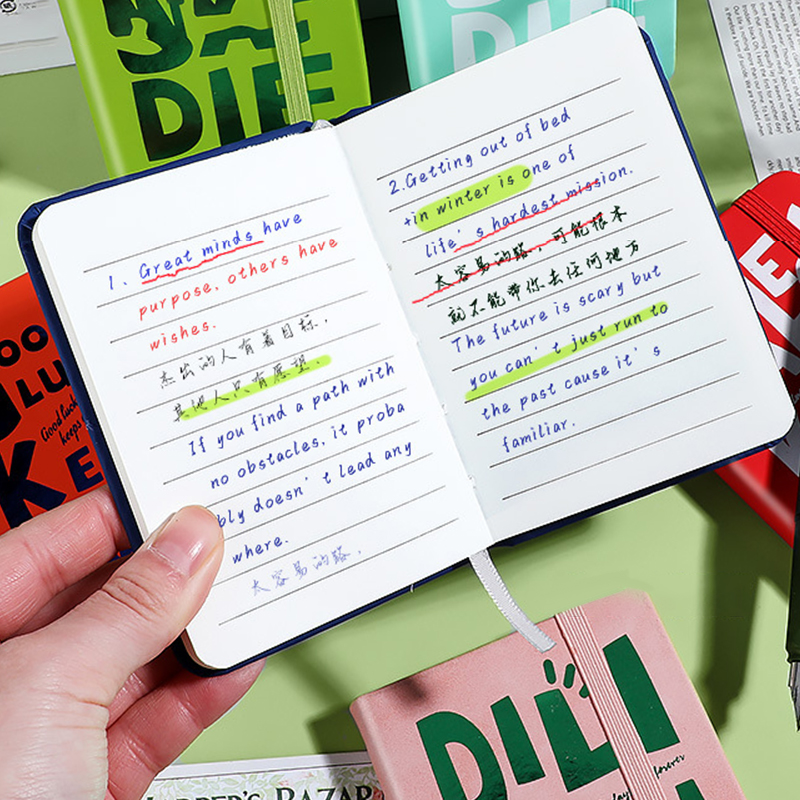 DIE
DIE
1. Great minds have
purpose, others have
wishes.
杰出的人有着目标,
其他人只有愿望.
If you find a path with
no obstacles, it proba
bly doesn't lead any
where.
太容易的路,
2.Getting out of bed
+in winter is one of
life's hardest mission.
太容易的路,可能根本
就不能带你去任何地方
The future is scary but
you can't just run to
the past cause it's
familiar.
Good luck
keeps
DILI
forever
HARPER'S BAZAR